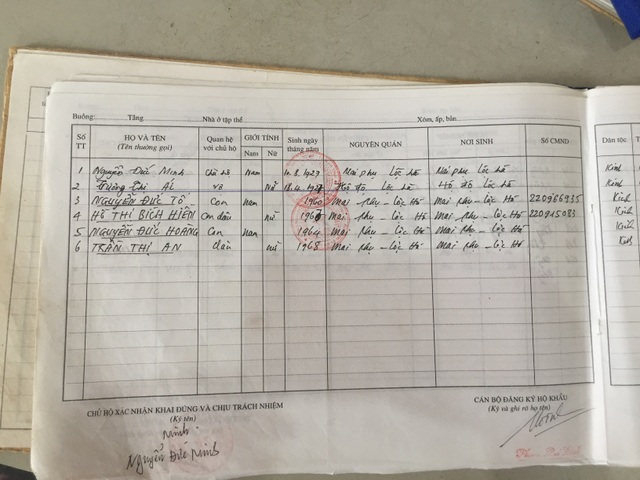 Buồng: Tầng Nhà ở tập thể Xóm, ấp, bản
Số TT HỌ VÀ TÊN (Tên thường gọi) Quan hệ với chủ hộ GIỚI TÍNH Nam Nữ Sinh ngày tháng năm NGUYÊN QUÁN NƠI SINH Số CMND Dân tộc
1 Nguyễn Đức Minh chủ hộ Nam 1923 Mai phụ Lộc hà Mai phụ Lộc hà Kinh
2 Trương Thị Ái vợ Nữ Hộ độ Lộc hà Hộ độ Lộc hà Kinh
3 NGUYỄN ĐỨC TỐ Con Nam 1960 Mai phụ - Lộc Hà Mai phụ - Lộc Hà Kinh
4 HỒ THỊ BÍCH HIỀN Con dâu nữ Mai phụ - Lộc Hà Mai phụ - Lộc Hà 220945083 Kinh
5 NGUYỄN ĐỨC HOÀNG Con Nam 1964 Mai phụ - Lộc Hà Mai phụ - Lộc Hà Kinh
6 TRẦN THỊ AN dâu nữ 1968 Mai phụ - Lộc Hà Mai phụ - Lộc Hà Kinh
CHỦ HỘ XÁC NHẬN KHAI ĐÚNG VÀ CHỊU TRÁCH NHIỆM
(Ký tên)
CÁN BỘ ĐĂNG KÝ HỘ KHẨU
(Ký và ghi rõ họ tên)
Minh
Nguyễn Đức Minh